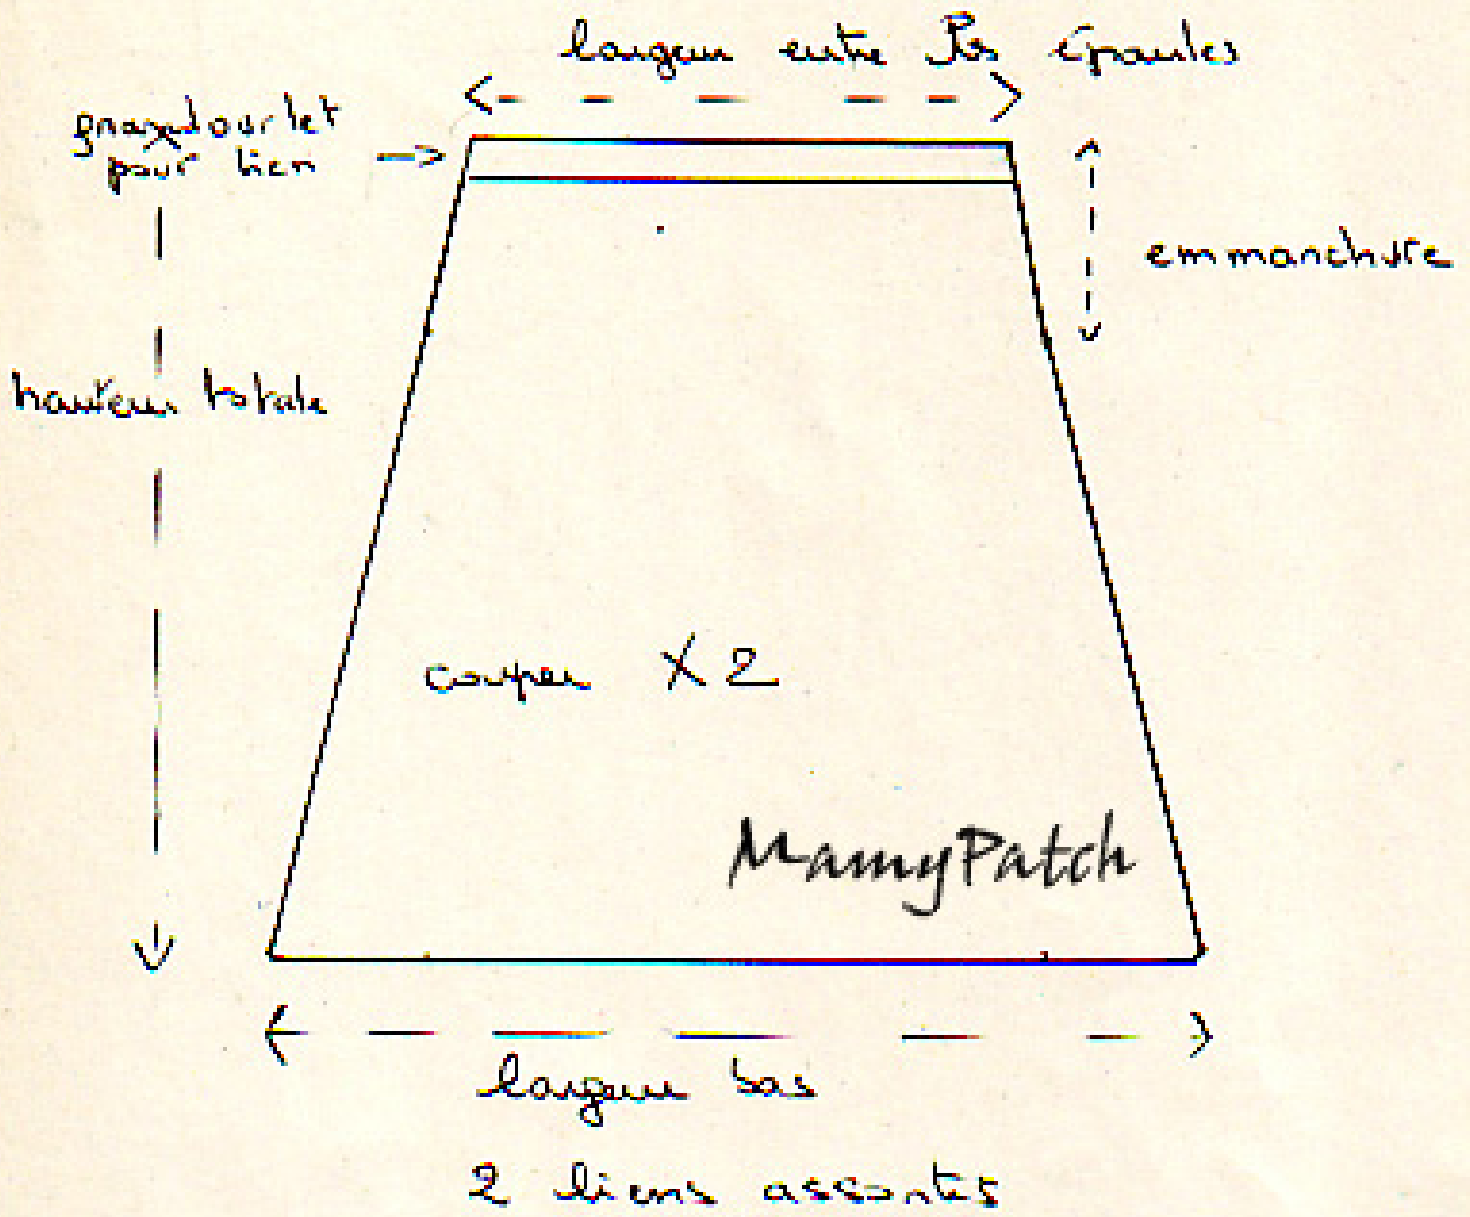 largeur entre les épaules
grand ourlet
pour lien
emmanchure
hauteur totale
couper X 2
MamyPatch
largeur bas
2 liens assortis